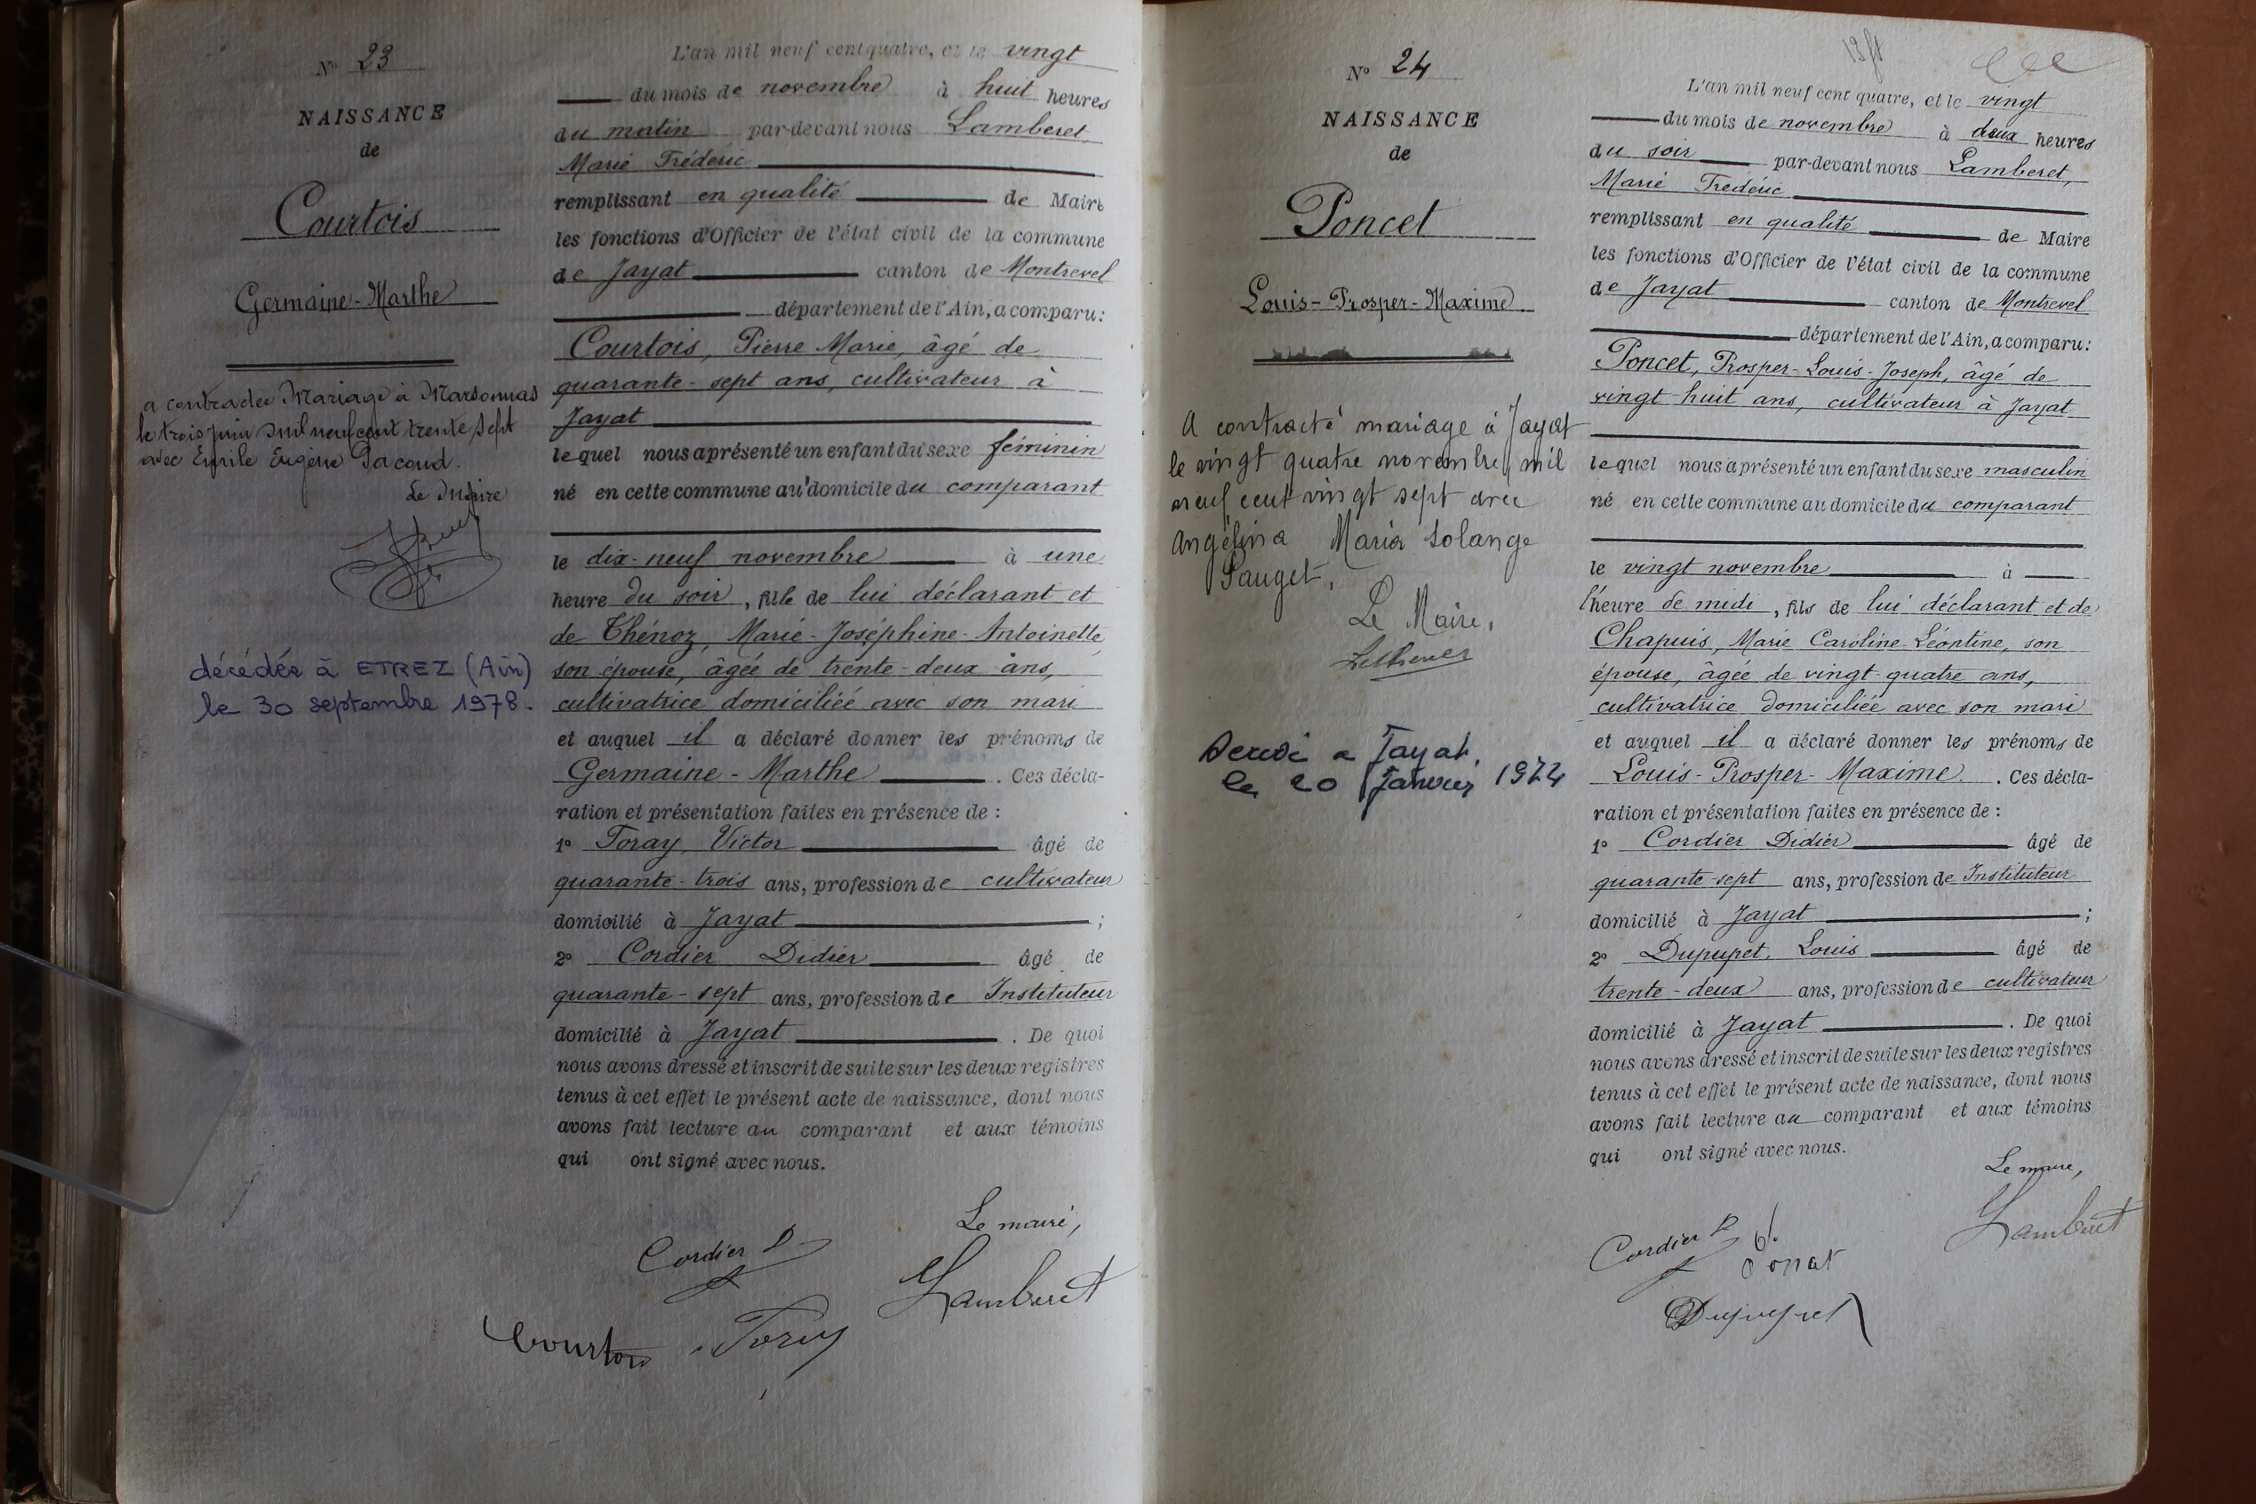 N° 23
NAISSANCE
de
Courtois
Germaine-Marthe
a contractée Mariage à Marsonnas
le trois juin mil neuf cent trente sept
avec Emile Eugène Pacoud.
Le Maire
décédée à ETREZ (Ain)
le 30 septembre 1978.
L'an mil neuf cent quatre, et le vingt
du mois de novembre à huit heures
du matin par-devant nous Lamberet,
Marie Frédéric
remplissant en qualité de Maire
les fonctions d'Officier de l'état civil de la commune
de Jayat canton de Montrevel
département de l'Ain, a comparu:
Courtois, Pierre Marie, âgé de
quarante-sept ans, cultivateur à
Jayat
lequel nous a présenté un enfant du sexe féminin
né en cette commune au domicile du comparant
le dix-neuf novembre à une
heure du soir, fille de lui déclarant et
de Thénoz, Marie-Joséphine-Antoinette,
son épouse, âgée de trente-deux ans,
cultivatrice domiciliée avec son mari
et auquel il a déclaré donner les prénoms de
Germaine-Marthe. Ces décla-
ration et présentation faites en présence de :
1° Foray, Victor âgé de
quarante-trois ans, profession de cultivateur
domicilié à Jayat ;
2° Cordier Didier âgé de
quarante-sept ans, profession de Instituteur
domicilié à Jayat. De quoi
nous avons dressé et inscrit de suite sur les deux registres
tenus à cet effet le présent acte de naissance, dont nous
avons fait lecture au comparant et aux témoins
qui ont signé avec nous.
Le maire,
Cordier D
Lamberet
Courtois Foray
N° 24
NAISSANCE
de
Poncet
Louis-Prosper-Maxime
A contracté mariage à Jayat
le vingt quatre novembre mil
neuf cent vingt sept avec
Angélina Maria Solange
Pauget.
Le Maire,
Décédé à Jayat,
le 20 Janvier 1974
L'an mil neuf cent quatre, et le vingt
du mois de novembre à deux heures
du soir par-devant nous Lamberet,
Marie Frédéric
remplissant en qualité de Maire
les fonctions d'Officier de l'état civil de la commune
de Jayat canton de Montrevel
département de l'Ain, a comparu:
Poncet, Prosper-Louis-Joseph, âgé de
vingt-huit ans, cultivateur à Jayat
lequel nous a présenté un enfant du sexe masculin
né en cette commune au domicile du comparant
le vingt novembre à
l'heure de midi, fils de lui déclarant et de
Chapuis, Marie Caroline-Léontine, son
épouse, âgée de vingt-quatre ans,
cultivatrice domiciliée avec son mari
et auquel il a déclaré donner les prénoms de
Louis-Prosper-Maxime. Ces décla-
ration et présentation faites en présence de :
1° Cordier Didier âgé de
quarante-sept ans, profession de Instituteur
domicilié à Jayat ;
2° Dupupet, Louis âgé de
trente-deux ans, profession de cultivateur
domicilié à Jayat. De quoi
nous avons dressé et inscrit de suite sur les deux registres
tenus à cet effet le présent acte de naissance, dont nous
avons fait lecture au comparant et aux témoins
qui ont signé avec nous.
Le maire,
Cordier D
Lamberet
Dupupet